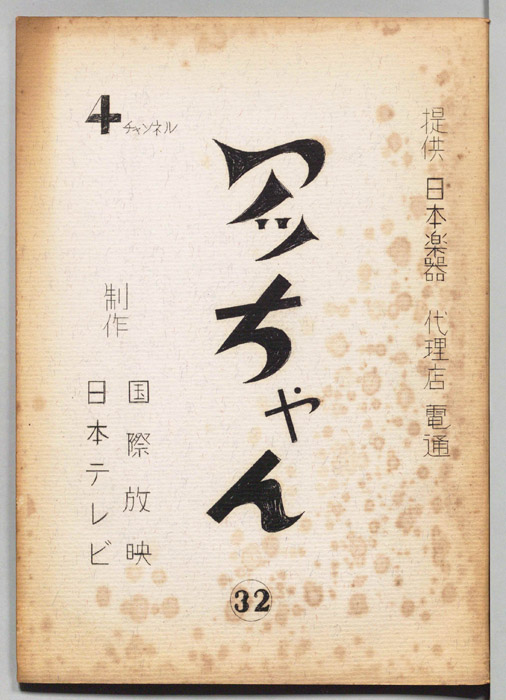 提供 日本楽器 代理店 電通
アッちゃん
32
4チャンネル
制作
国際放映
日本テレビ